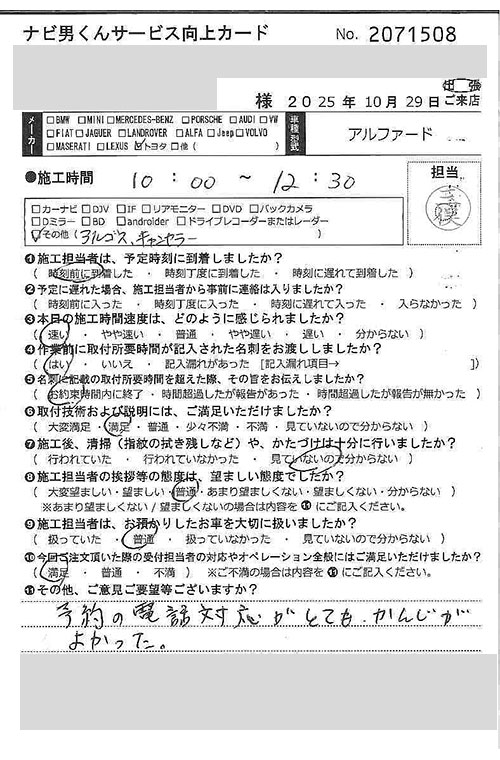 ナビ男くんサービス向上カード No. 2071508
様 2025年10月29日 出張 ご来店
メーカー □BMW □MINI □MERCEDES-BENZ □PORSCHE □AUDI □VW
□FIAT □JAGUER □LANDROVER □ALFA □Jeep □VOLVO
□MASERATI □LEXUS ☑トヨタ □他 ( )
車種型式 アルファード
●施工時間 10:00 ~ 12:30
担当
□カーナビ □DJV □IF □リアモニター □DVD □バックカメラ
□Dミラー □BD □androider □ドライブレコーダーまたはレーダー
☑その他 (アルゴス、キャンセラー )
❶施工担当者は、予定時刻に到着しましたか?
( 時刻前に到着した ・ 時刻丁度に到着した ・ 時刻に遅れて到着した )
❷予定に遅れた場合、施工担当者から事前に連絡は入りましたか?
( 時刻前に入った ・ 時刻丁度に入った ・ 時刻に遅れて入った ・ 入らなかった )
❸本日の施工時間速度は、どのように感じられましたか?
( 速い ・ やや速い ・ 普通 ・ やや遅い ・ 遅い ・ 分からない )
❹作業前に取付所要時間が記入された名刺をお渡ししましたか?
( はい ・ いいえ ・ 記入漏れがあった [記入漏れ項目→ ] )
❺名刺に記載の取付所要時間を超えた際、その旨をお伝えしましたか?
( お約束時間内に終了 ・ 時間超過したが報告があった ・ 時間超過したが報告が無かった )
❻取付技術および説明には、ご満足いただけましたか?
( 大変満足 ・ 満足 ・ 普通 ・ 少々不満 ・ 不満 ・ 見ていないので分からない )
❼施工後、清掃(指紋の拭き残しなど)や、かたづけは十分に行いましたか?
( 行われていた ・ 行われていなかった ・ 見ていないので分からない )
❽施工担当者の挨拶等の態度は、望ましい態度でしたか?
( 大変望ましい・望ましい・普通・あまり望ましくない・望ましくない・分からない )
※あまり望ましくない/望ましくないの場合は内容を⓫にご記入ください。
❾施工担当者は、お預かりしたお車を大切に扱いましたか?
( 扱っていた ・ 普通 ・ 扱っていなかった ・ 見ていないので分からない )
❿今回ご注文頂いた際の受付担当者の対応やオペレーション全般にはご満足いただけましたか?
( 満足 ・ 普通 ・ 不満 ) ※ご不満の場合は内容を⓫にご記入ください。
⓫その他、ご意見ご要望等ございますか?
予約の電話対応がとても、かんじが
よかった。